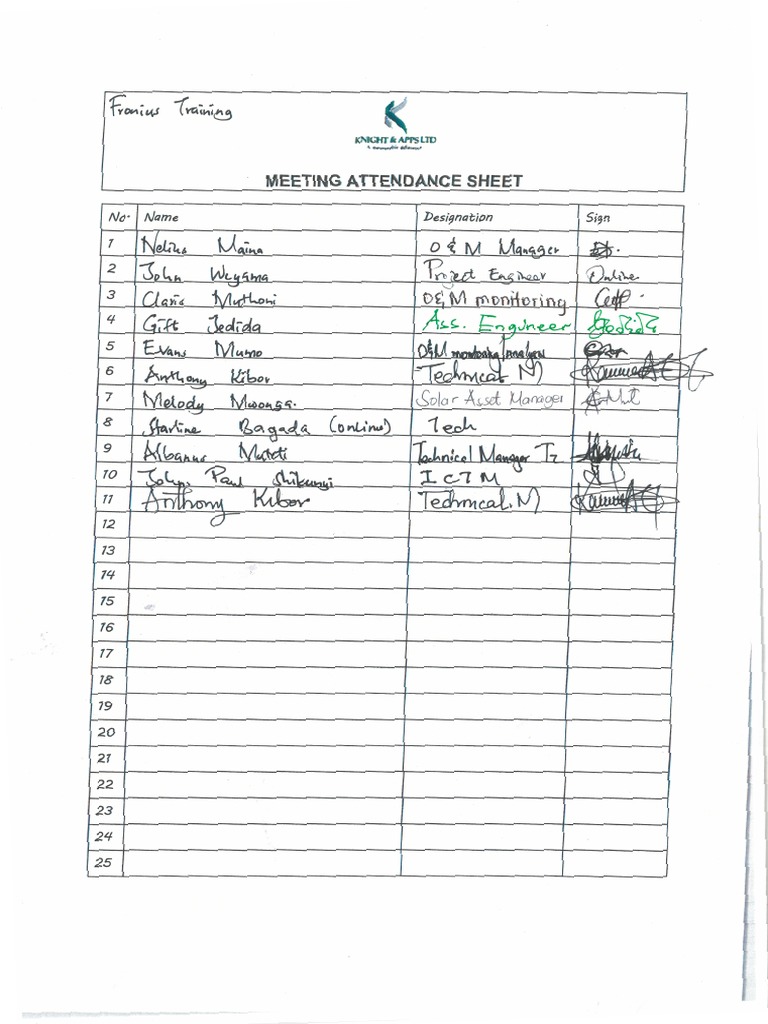 Fronius Training
KNIGHT & APPS LTD
MEETING ATTENDANCE SHEET
No. Name Designation Sign
1 Nelius Maina O & M Manager
2 John Weyama Project Engineer Online
3 Claris Muthoni O&M monitoring
4 Gift Jedida Ass. Engineer
5 Evans Mumo O&M monitoring Analyst
6 Anthony Kibor Technical M
7 Melody Mwonga. Solar Asset Manager
8 Starline Bagada (online) Tech
9 Albanus Mutati Technical Manager Tz
10 John Paul Shikunyi I C T M
11 Anthony Kibor Technical. M
12
13
14
15
16
17
18
19
20
21
22
23
24
25